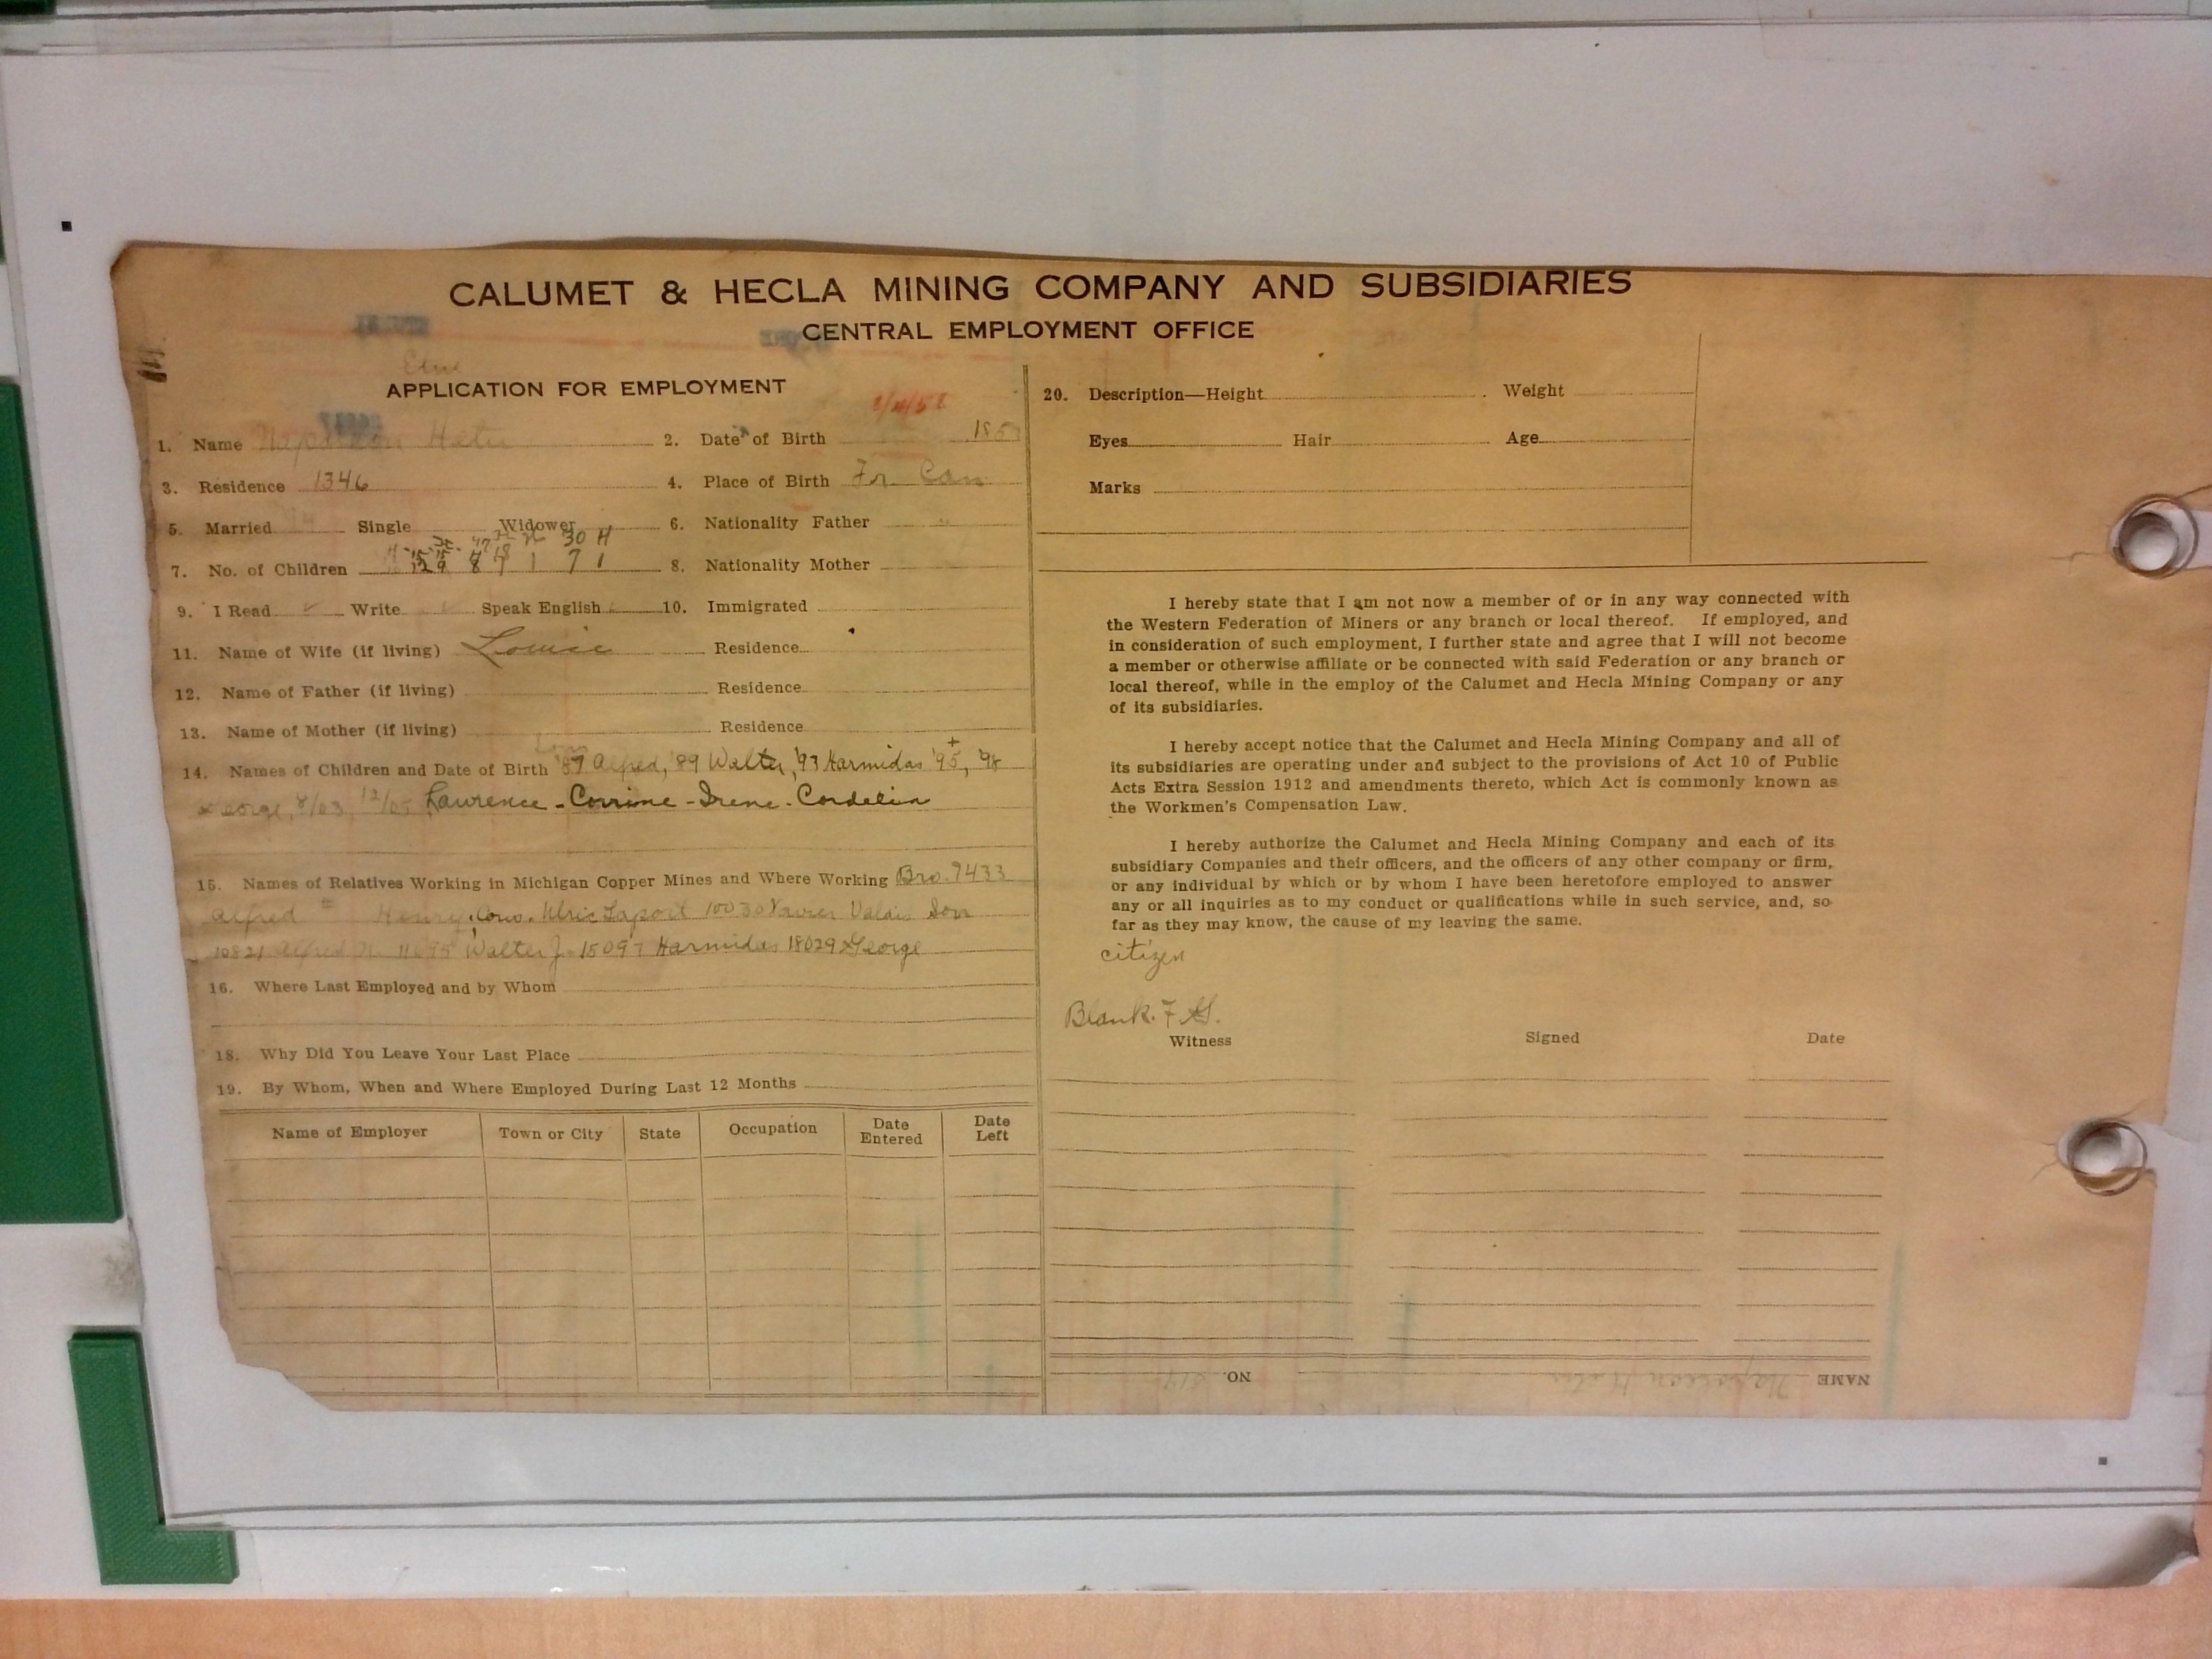 CALUMET & HECLA MINING COMPANY AND SUBSIDIARIES
CENTRAL EMPLOYMENT OFFICE
APPLICATION FOR EMPLOYMENT
1. Name Napoleon Hetu 2. Date of Birth 185
3. Residence 1346 4. Place of Birth Fr. Can
5. Married Single Widower 6. Nationality Father
30 H
7. No. of Children 12 9 8 7 1 7 1 8. Nationality Mother
9. I Read Write Speak English 10. Immigrated
11. Name of Wife (if living) Louise Residence
12. Name of Father (if living) Residence
13. Name of Mother (if living) Residence
14. Names of Children and Date of Birth '87 Alfred, '89 Walter, '93 Harmidas '95, '98
George, 8/03, 12/05 Lawrence - Corrine - Irene - Cordelia
15. Names of Relatives Working in Michigan Copper Mines and Where Working Bro. 7433
Alfred Henry, Cous. Ulric Laport 10030 Xavier Valais Son
10821 Alfred N. 11695 Walter J. 15097 Harmidas 18029 George
16. Where Last Employed and by Whom
18. Why Did You Leave Your Last Place
19. By Whom, When and Where Employed During Last 12 Months
Name of Employer Town or City State Occupation Date Entered Date Left
20. Description—Height Weight
Eyes Hair Age
Marks
I hereby state that I am not now a member of or in any way connected with
the Western Federation of Miners or any branch or local thereof. If employed, and
in consideration of such employment, I further state and agree that I will not become
a member or otherwise affiliate or be connected with said Federation or any branch or
local thereof, while in the employ of the Calumet and Hecla Mining Company or any
of its subsidiaries.
I hereby accept notice that the Calumet and Hecla Mining Company and all of
its subsidiaries are operating under and subject to the provisions of Act 10 of Public
Acts Extra Session 1912 and amendments thereto, which Act is commonly known as
the Workmen's Compensation Law.
I hereby authorize the Calumet and Hecla Mining Company and each of its
subsidiary Companies and their officers, and the officers of any other company or firm,
or any individual by which or by whom I have been heretofore employed to answer
any or all inquiries as to my conduct or qualifications while in such service, and, so
far as they may know, the cause of my leaving the same.
citizen
Blank. F.G.
Witness Signed Date
NAME Napoleon Hetu NO.